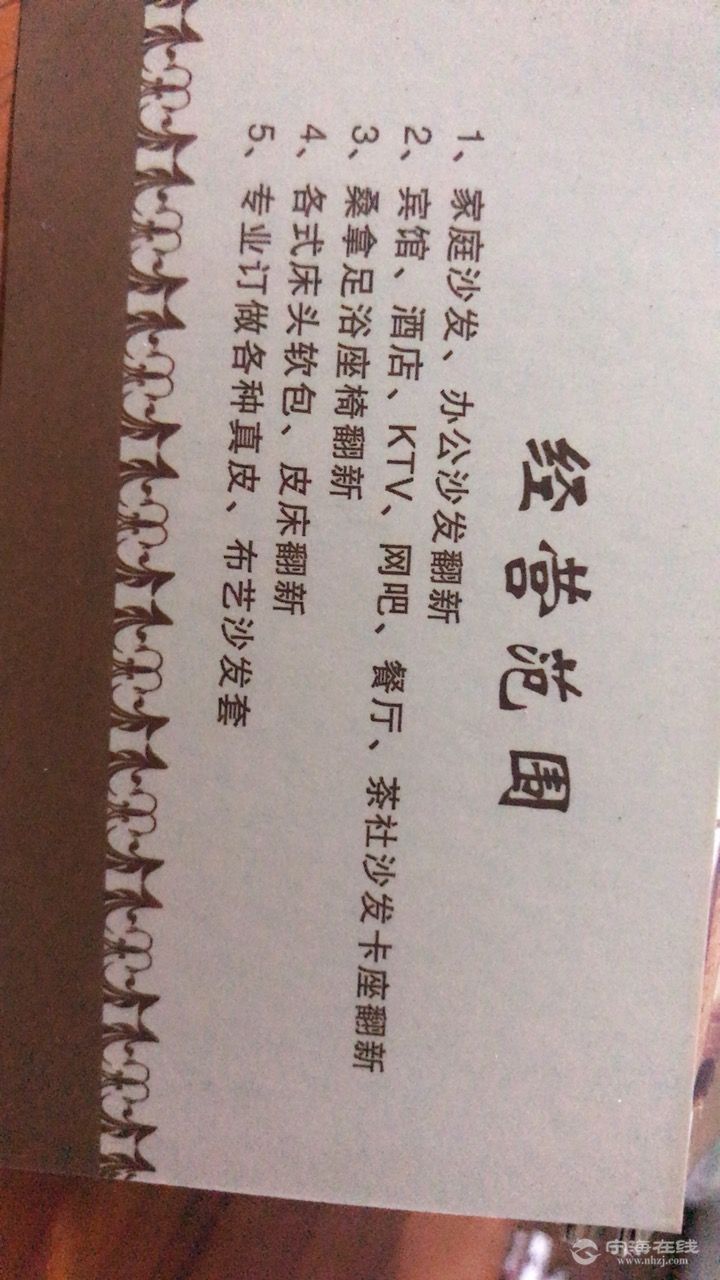 经营范围
1、家庭沙发、办公沙发翻新
2、宾馆、酒店、KTV、网吧、餐厅、茶社沙发卡座翻新
3、桑拿足浴座椅翻新
4、各式床头软包、皮床翻新
5、专业订做各种真皮、布艺沙发套
宁海在线
www.nhzj.com